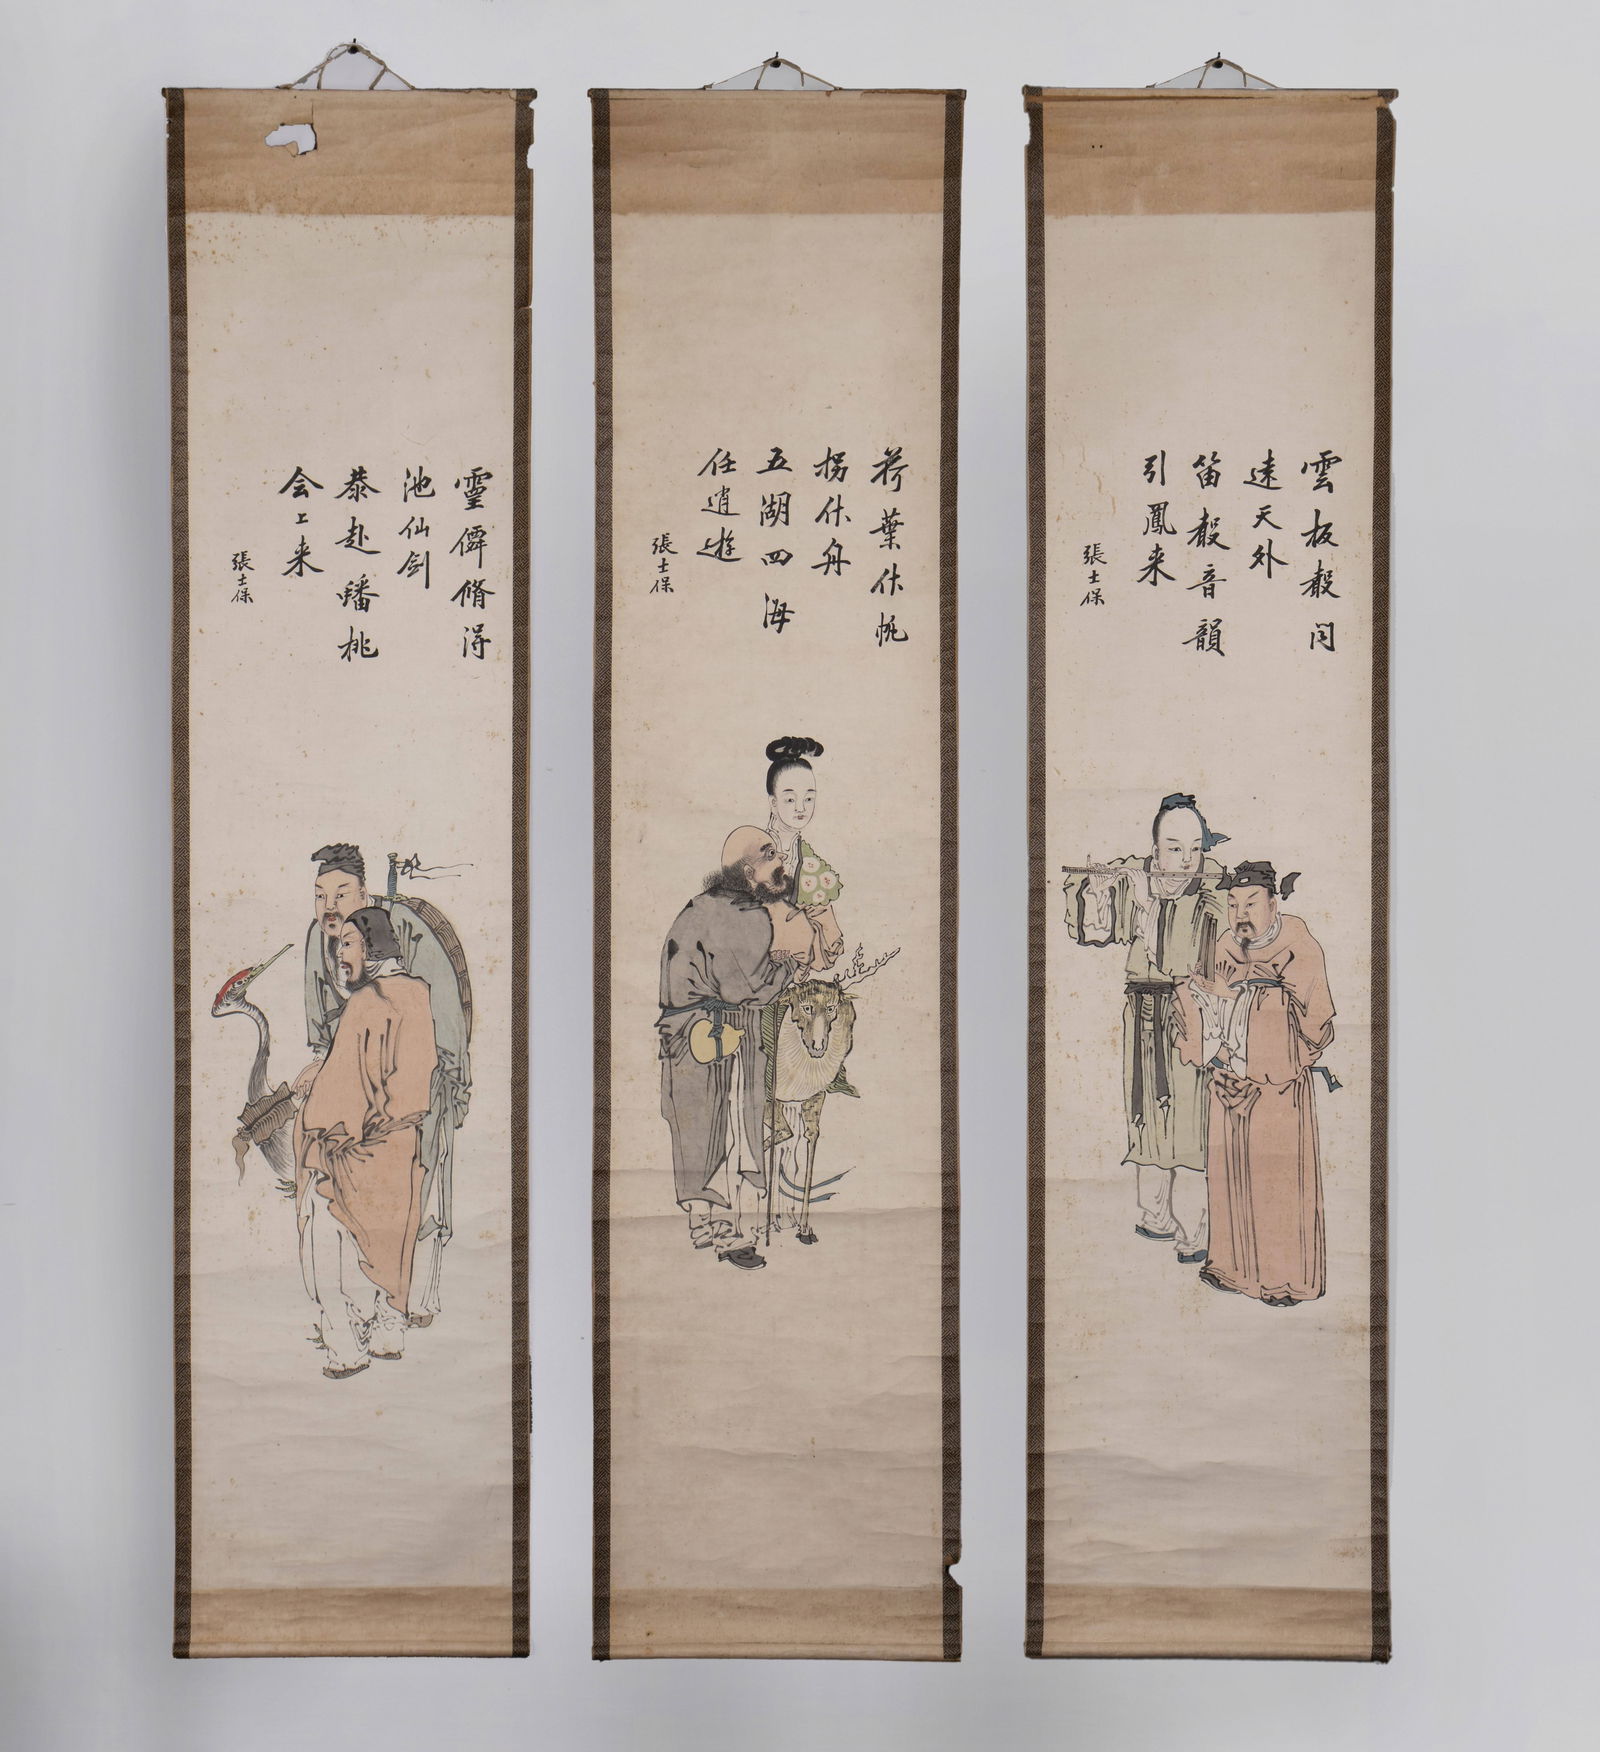 雲板聲闻
逺天外
笛聲音韻
引鳳来
張士保
荷葉作帆
拐作舟
五湖四海
任逍遊
張士保
靈僊脩得
池仙剑
恭赴蟠桃
会上来
張士保